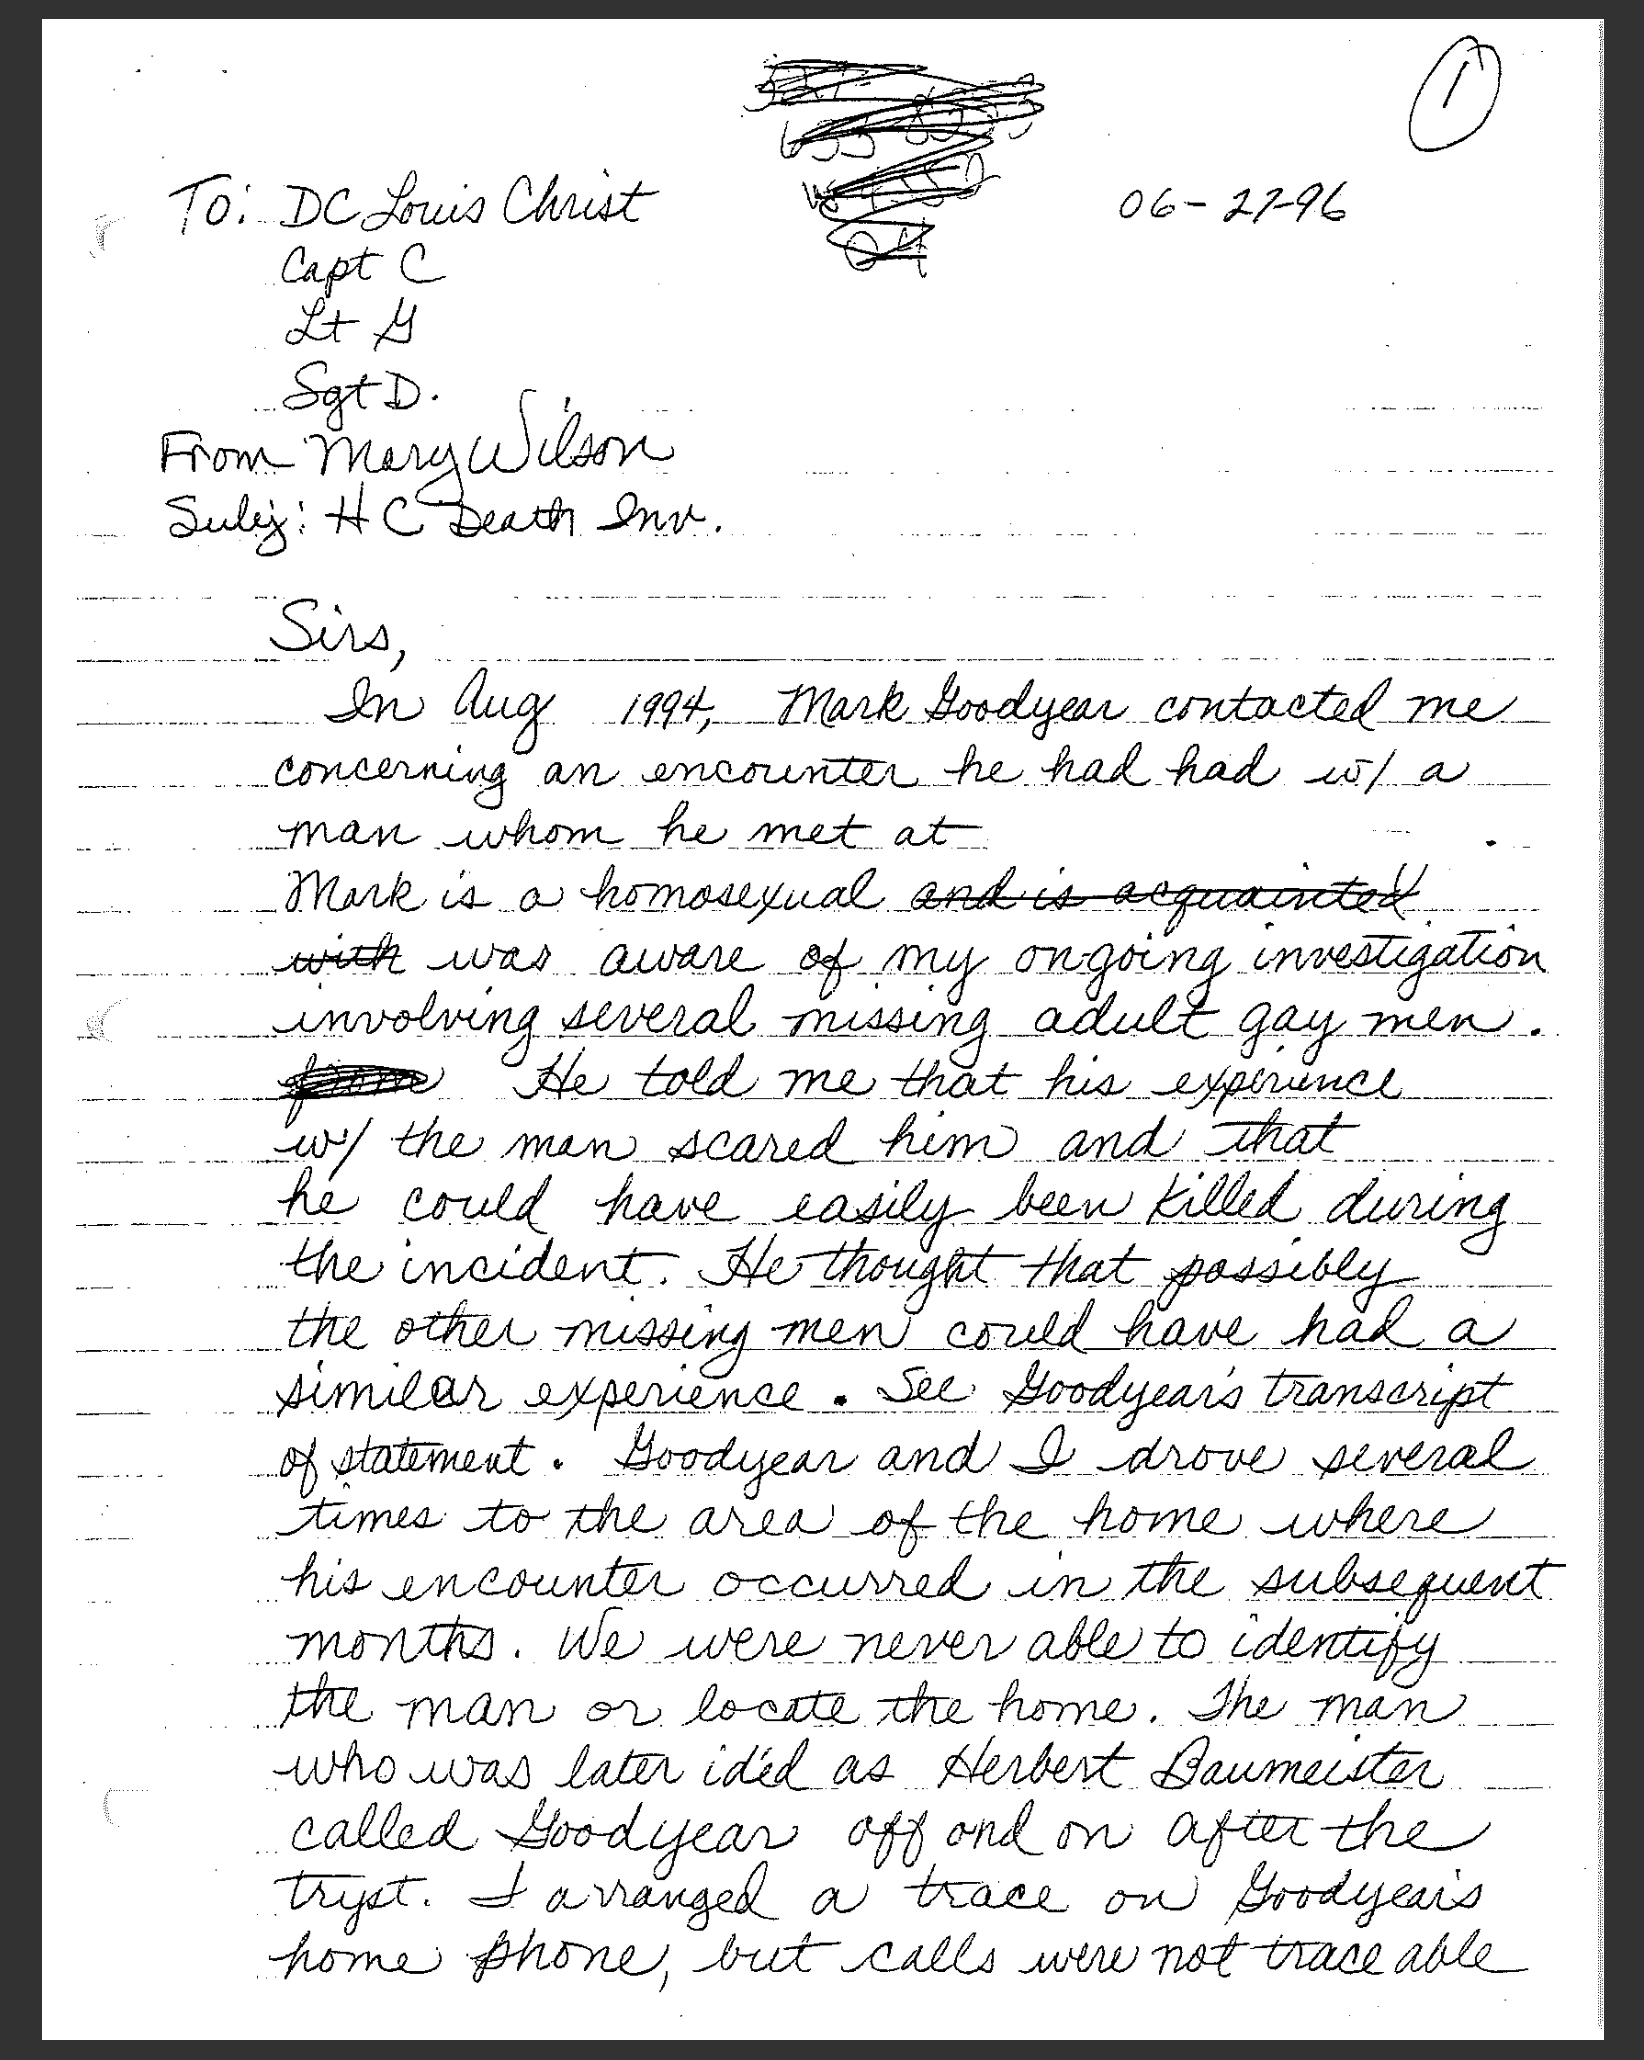 1
To: DC Louis Christ
06-27-96
Capt C
Lt G
Sgt D.
From Mary Wilson
Subj: H C Death Inv.
Sirs,
In Aug 1994, Mark Goodyear contacted me
concerning an encounter he had had w/ a
man whom he met at
Mark is a homosexual and is acquainted
with was aware of my on-going investigation
involving several missing adult gay men.
from He told me that his experience
w/ the man scared him and that
he could have easily been killed during
the incident. He thought that possibly
the other missing men could have had a
similar experience. See Goodyear's transcript
of statement. Goodyear and I drove several
times to the area of the home where
his encounter occurred in the subsequent
months. We were never able to identify
the man or locate the home. The man
who was later id'ed as Herbert Baumeister
called Goodyear off and on after the
tryst. I arranged a trace on Goodyear's
home phone, but calls were not traceable